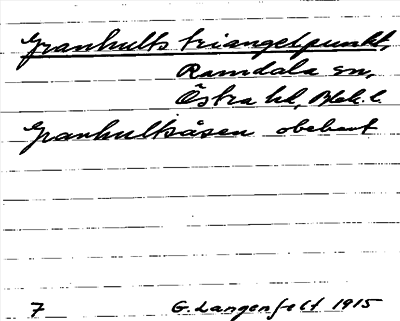 Granhults triangelpunkt,
Ramdala sn,
Östra hd, Blek. l.
Granhultsåsen obebort
7 G. Langenfelt 1915